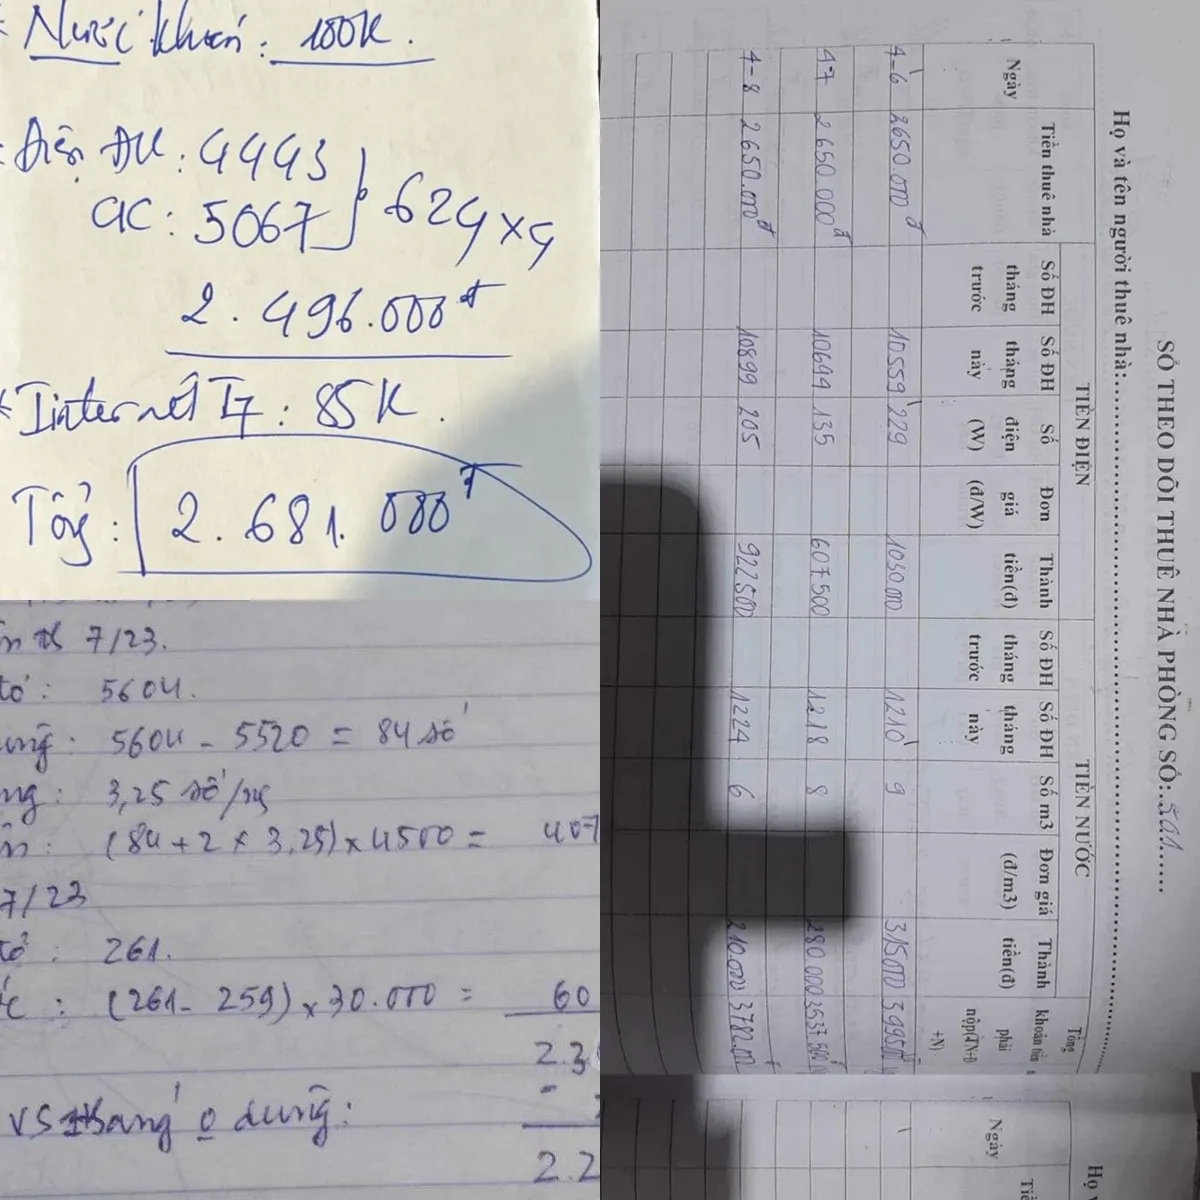 * Nước khoán: 100K.
* Điện ĐK: 4443
CK: 5067 } 624 x 4
2.496.000đ
* Internet T7: 85K.
Tổng: 2.681.000đ
7/23.
5604.
5604 - 5520 = 84 số
3,25 số/ng
(84 + 2 x 3.25) x 4500 = 407
7/23
261.
(261 - 259) x 30.000 = 60
2.3
VS tháng o dùng:
2.2
SỔ THEO DÕI THUÊ NHÀ PHÒNG SỐ: 501
Họ và tên người thuê nhà:
Ngày Tiền thuê nhà TIỀN ĐIỆN TIỀN NƯỚC Tổng khoản tiền phải nộp(TN+Đ+N)
Số ĐH tháng trước Số ĐH tháng này Số điện (W) Đơn giá (đ/W) Thành tiền(đ) Số ĐH tháng trước Số ĐH tháng này Số m3 Đơn giá (đ/m3) Thành tiền(đ)
4-6 2650.000đ 10559 229 1030.000 1210 9 315000
4-7 2650.000đ 10694 135 607.500 1218 8 280.000 3537.500
4-8 2650.000đ 10899 205 922.500 1224 6 210.000 3782.
Ngày